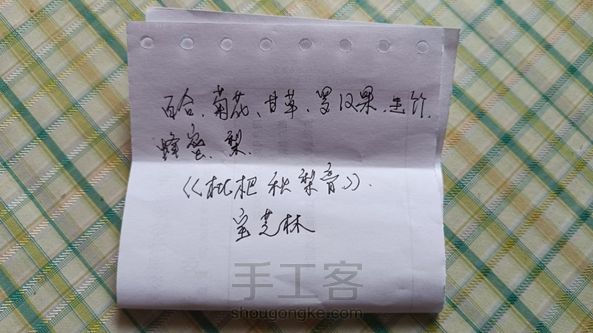 百合、菊花、甘草、罗汉果、生竹、
蜂蜜、梨、
《枇杷秋梨膏》.
宝芝林
手工客
shougongke.com